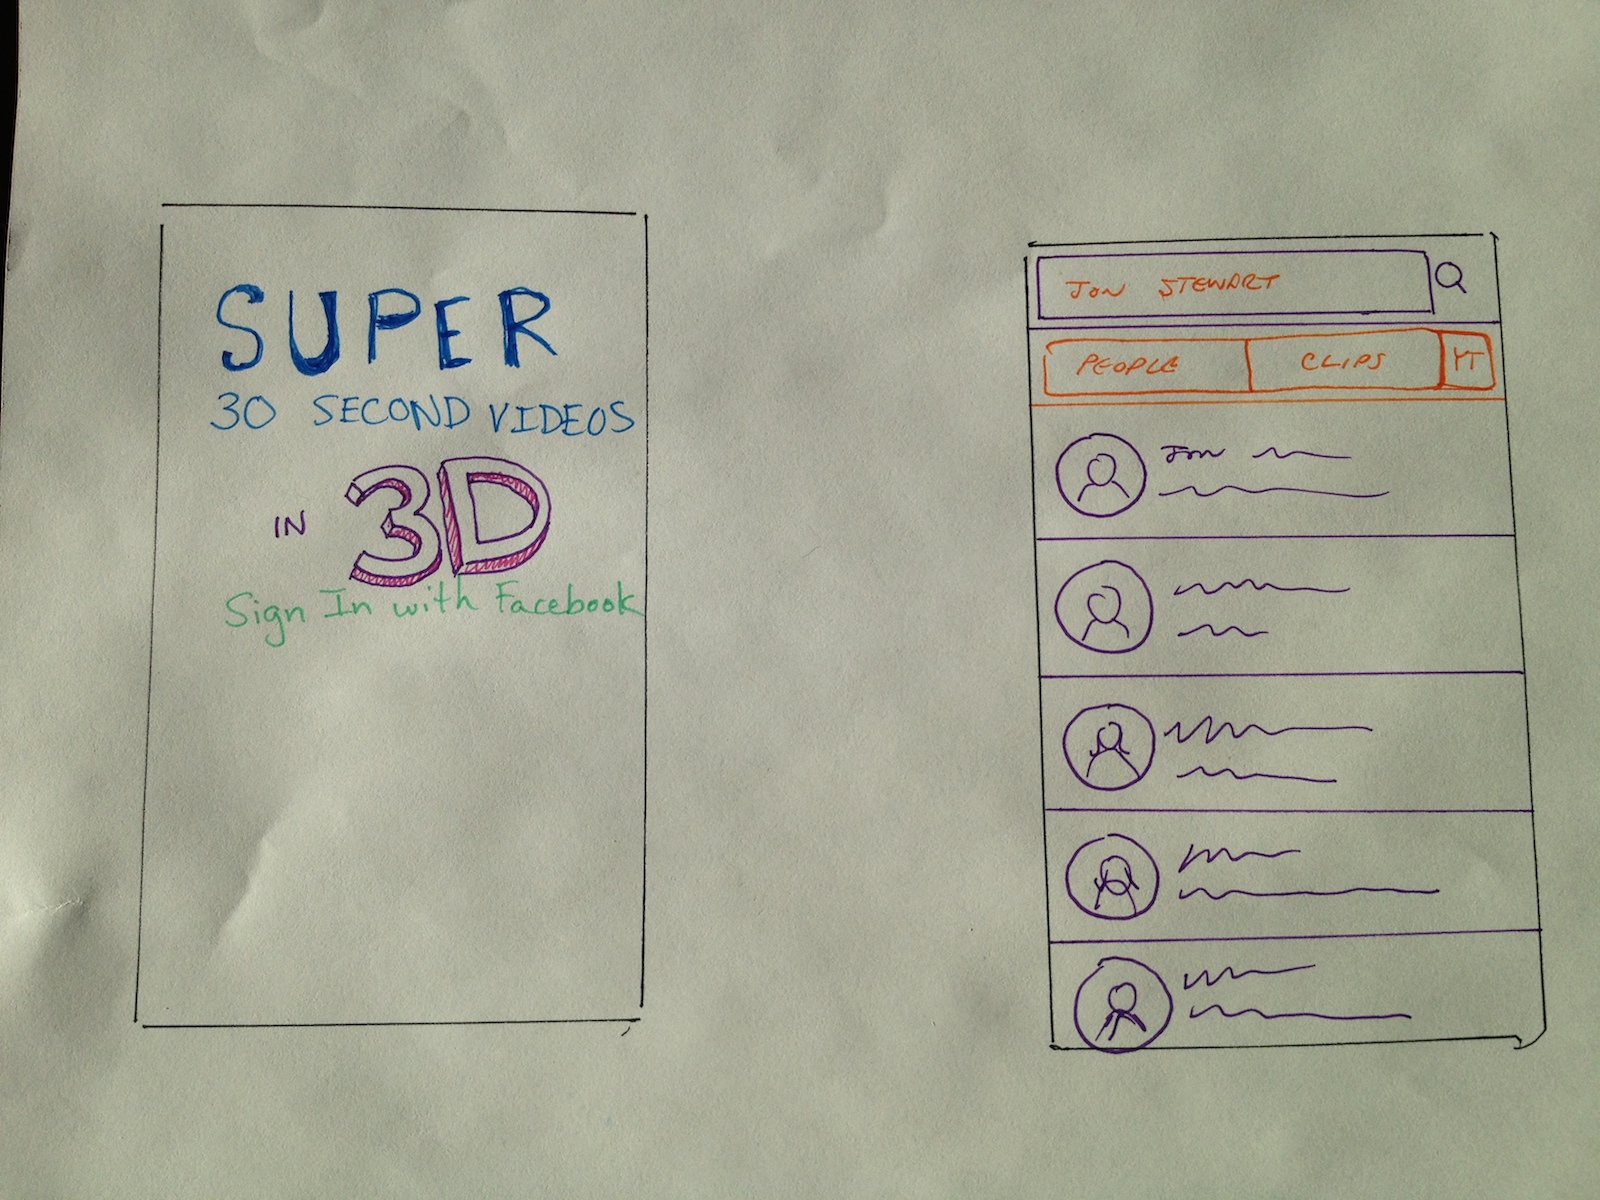 SUPER
30 SECOND VIDEOS
IN 3D
Sign In with Facebook
JON STEWART
PEOPLE CLIPS YT
Jon